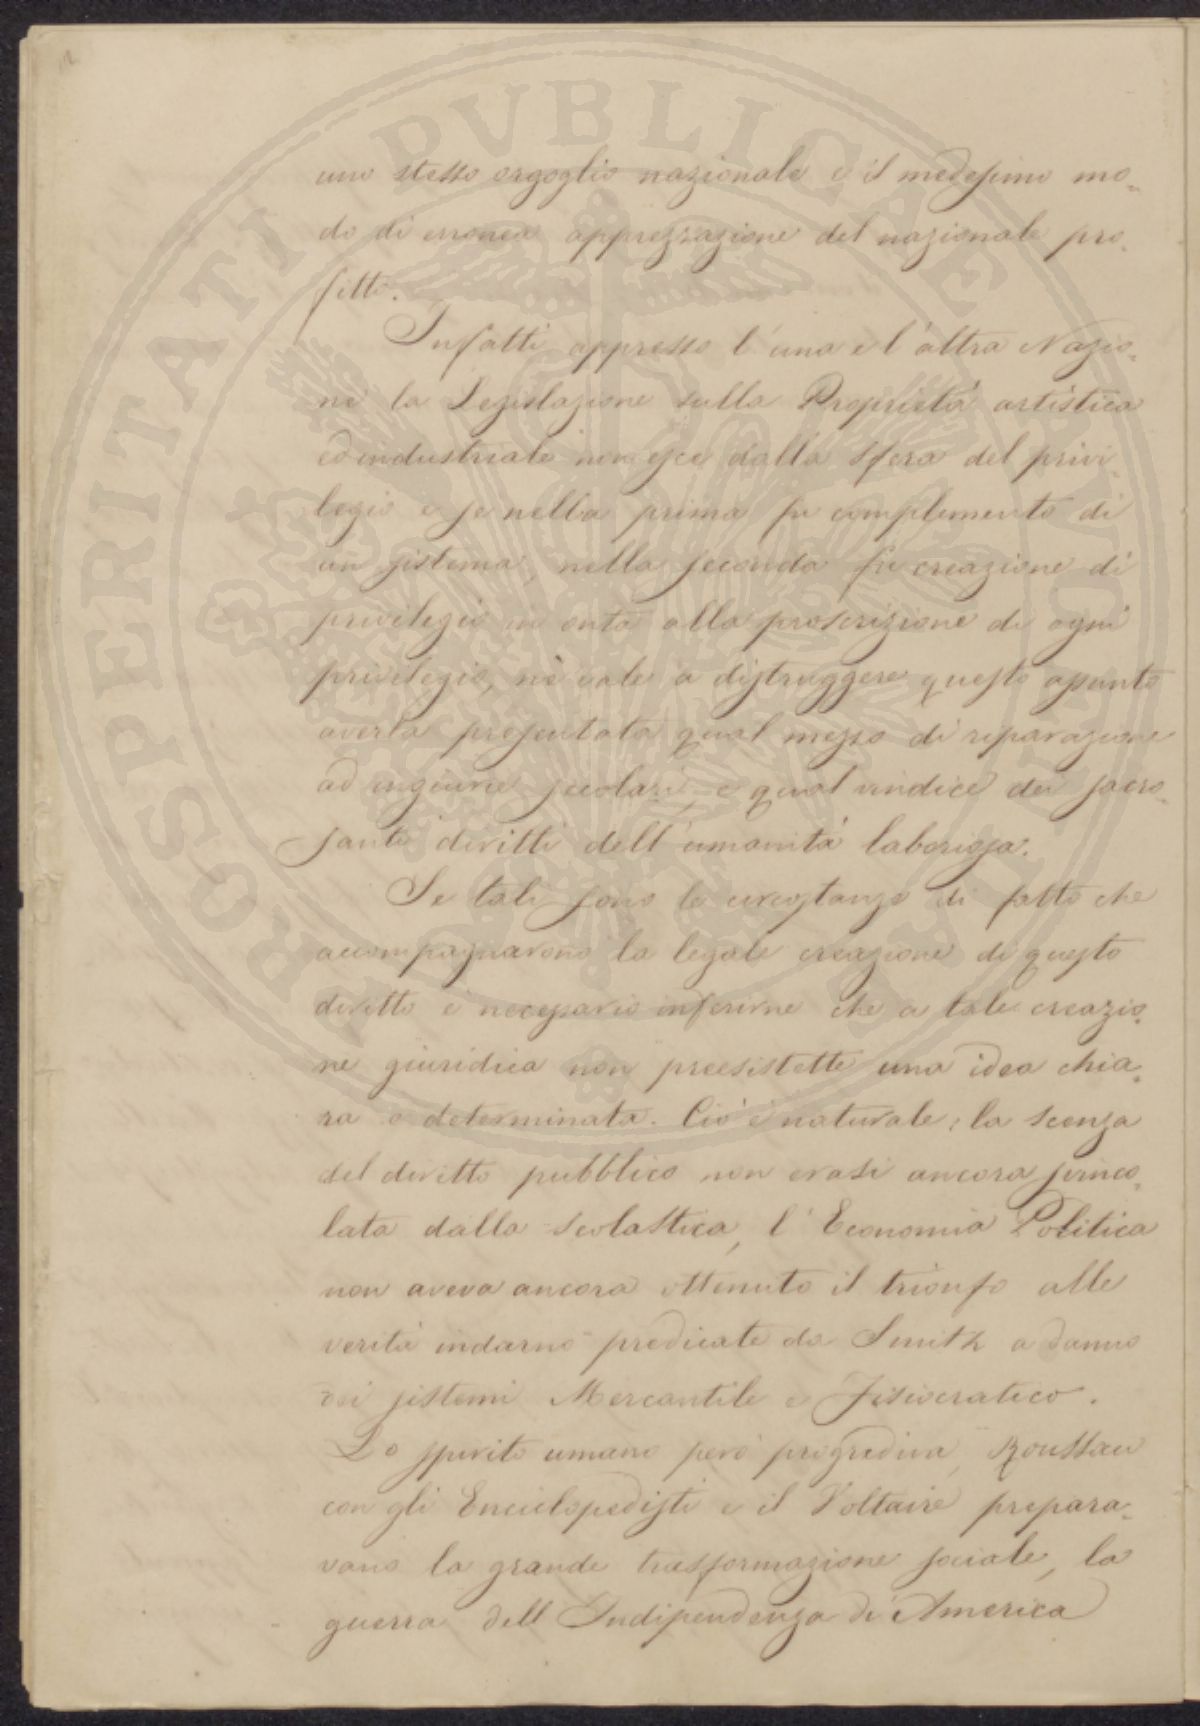 uno stesso orgoglio nazionale e il medesimo mo-
do di erronea apprezzazione del nazionale pro-
fitto.
Infatti appresso l'una e l'altra Nazio-
ne la Legislazione sulla Proprietà artistica
ed industriale non esce dalla sfera del privi-
legio e se nella prima fu complemento di
un sistema, nella seconda fu creazione di
privilegio in onta alla proscrizione di ogni
privilegio, nè vale a distruggere questo apunto
averla presentata qual mezzo di riparazione
ad ingiurie secolari, e qual vindice dei sacro-
santi diritti dell'umanità laboriosa.
Se tali sono le circostanze di fatto che
accompagnarono la legale creazione di questo
diritto è necessario inferirne che a tale creazio-
ne giuridica non preesistette una idea chia-
ra e determinata. Ciò è naturale; la scenza
del diritto pubblico non erasi ancora svinco-
lata dalla scolastica, l'Economia Politica
non aveva ancora ottenuto il trionfo alle
verità indarno predicate da Smith a danno
dei sistemi Mercantile e Fisiocratico.
Lo spirito umano però progrediva, Roussau
con gli Enciclopedisti e il Voltaire prepara-
vano la grande trasformazione sociale, la
guerra dell Indipendenza di America
PROSPERITATI PVBLICAE